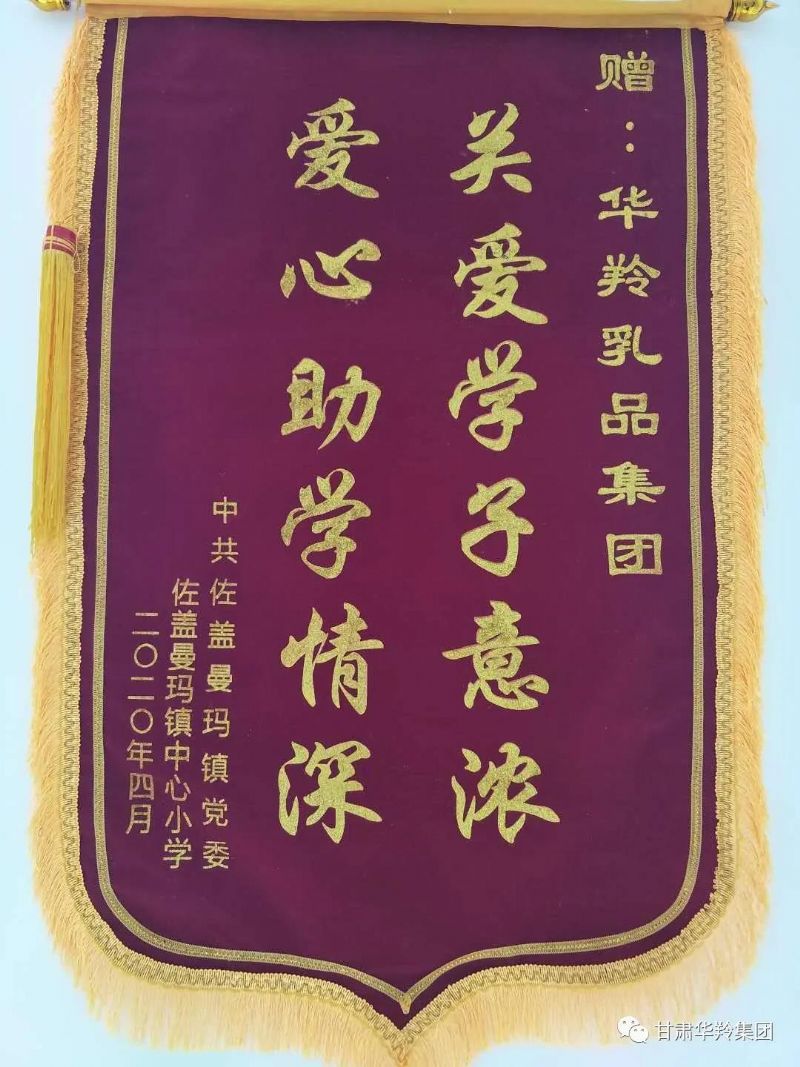 赠：华羚乳品集团
关爱学子意浓
爱心助学情深
中共佐盖曼玛镇党委
佐盖曼玛镇中心小学
二〇二〇年四月
甘肃华羚集团